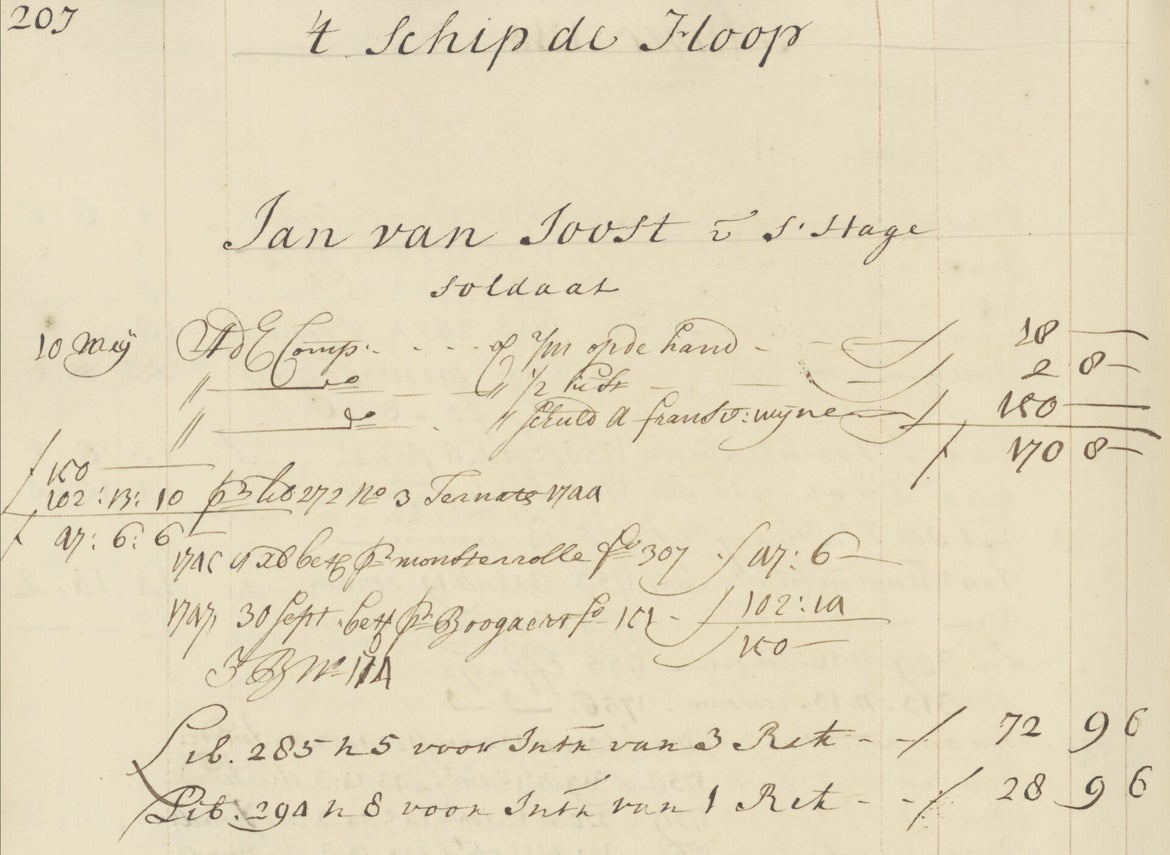 207
't Schip de Hoop
Jan van Joost v s' Hage
Soldaat
10 Meij Ad E Comp. op 2/m op de hand 18 —
" do " 1/2 kist 2 8 —
" do " Schuld a fransv: wijne 150 —
170 8 —
150 —
102:13:10 pr lib 272 no 3 Ternate 1744
47:6:6
1745 9 xb bet pr monsterrolle fo 307 47:6 —
1747 30 Sept bet pr Boogaert fo 151 102:14
150 —
Lib. 285 n 5 voor Intn van 3 Rek 72 9 6
Lib. 294 n 8 voor Intn van 1 Rek 28 9 6